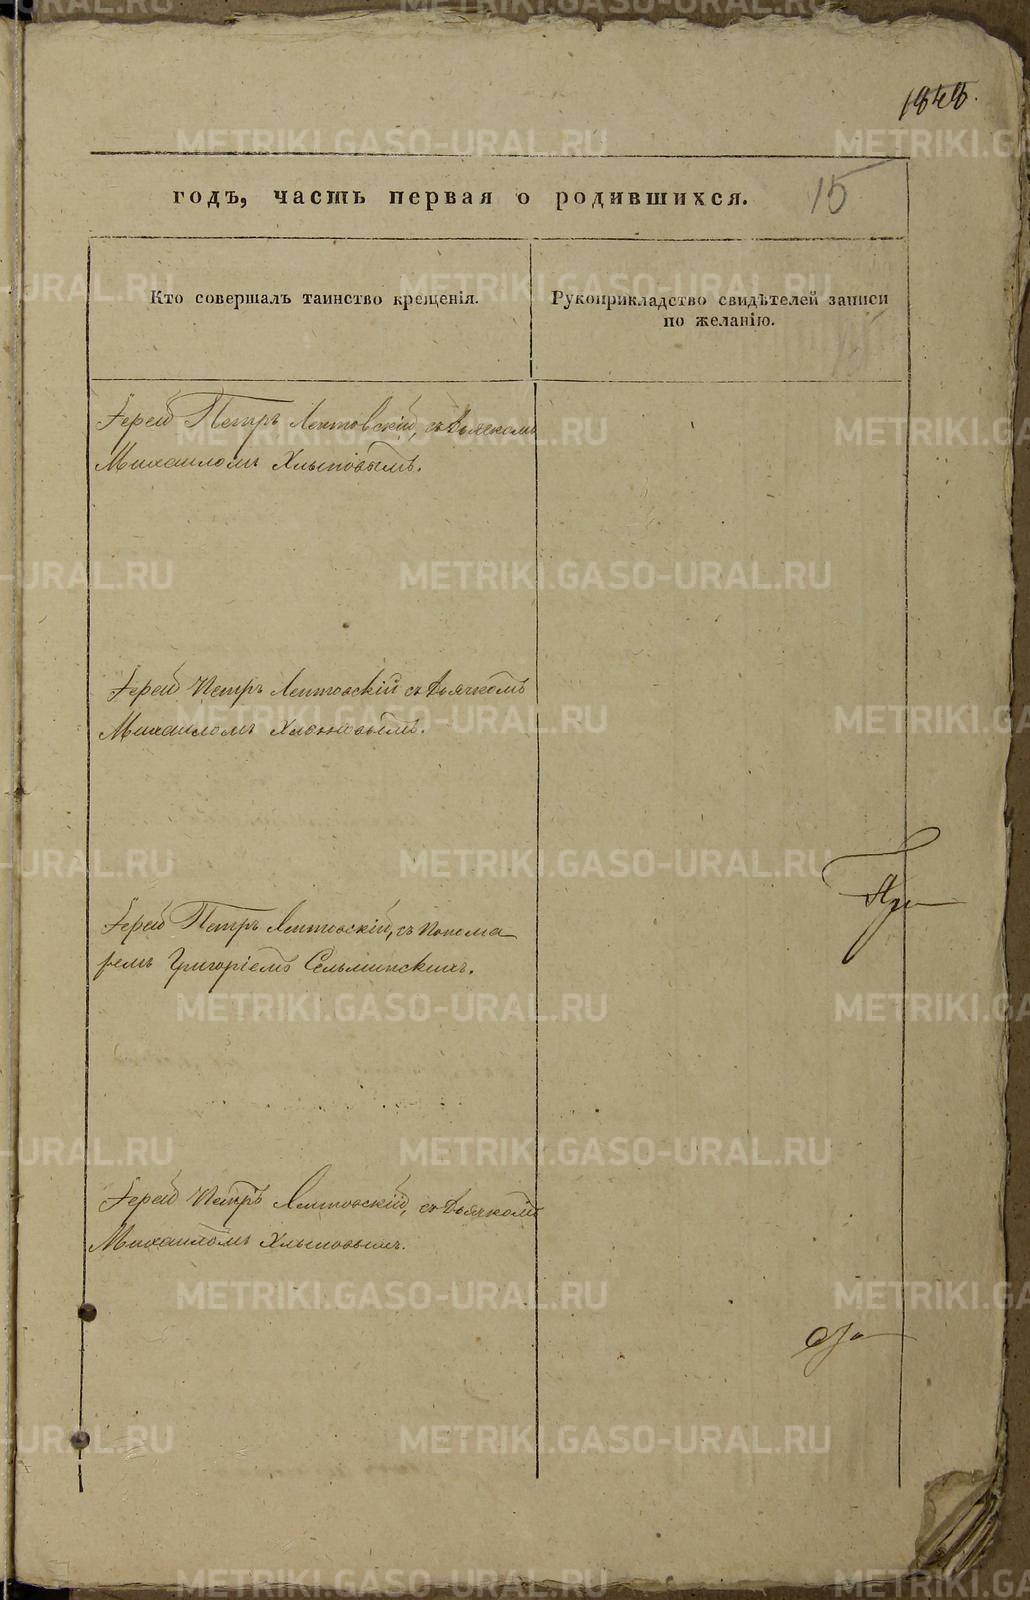 1848.
15
годъ, часть первая о родившихся.
Кто совершалъ таинство крещенія.
Рукоприкладство свидѣтелей записи
по желанію.
Іерей Петръ Лептовскій, съ Дьячкомъ
Михаиломъ Хлыновымъ.
Іерей Петръ Лептовскій съ Дьячкомъ
Михаиломъ Хлыновымъ.
Іерей Петръ Лептовскій, съ Понома
ремъ Григоріемъ
Іерей Петръ Лептовскій, съ Дьячкомъ
Михаиломъ Хлыновымъ.
METRIKI.GASO-URAL.RU